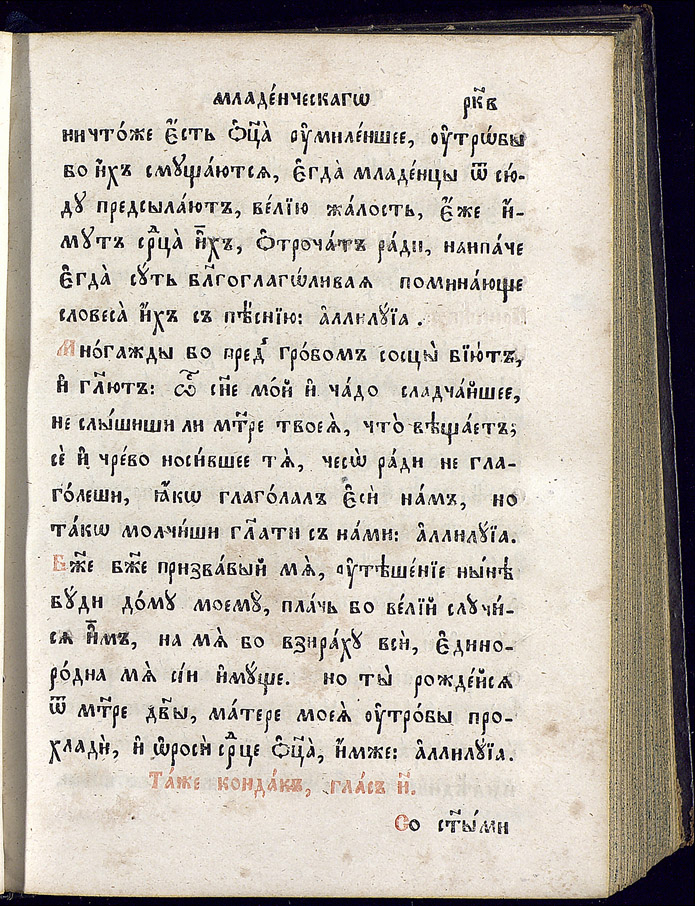 младе́нческагѡ рк҃в
ничто́же є҆́сть ѻ҆ц҃а̀ ᲂу҆миле́ншее, ᲂу҆трѡ́бы
бо и҆́хъ смꙋща́ются, є҆гда̀ младе́нцы ѿ сю́-
дꙋ предсыла́ютъ, ве́лїю жа́лость, є҆́же и҆́-
мꙋтъ срⷣца̀ и҆́хъ, ѻ҆троча́тъ ра́ди, наипа́че
є҆гда̀ сꙋ́ть бл҃гоглаго́лливая помина́юще
словеса̀ и҆́хъ съ пѣ́снїю: а҆ллилꙋ́їа.
Мно́гажды бо пред̾ гро́бомъ сосцы̀ бїю́тъ,
и҆ гл҃ютъ: ѽ сн҃е мо́й и҆ ча́до сладча́йшее,
не слы́шиши ли мт҃ре твоея̀, что̀ вѣща́етъ;
сѐ и҆ чре́во носи́вшее тя̀, чесѡ̀ ра́ди не гла-
го́леши, ꙗ҆́кѡ глаго́лалъ є҆сѝ на́мъ, но
та́кѡ молчи́ши гл҃ати съ на́ми: а҆ллилꙋ́їа.
Бж҃е бж҃е призва́вый мя̀, ᲂу҆тѣше́нїе ны́нѣ
бꙋ́ди до́мꙋ моемꙋ̀, пла́чь бо ве́лїй слꙋчи́-
ся и҆̀мъ, на мя̀ бо взира́хꙋ всѝ, є҆дино-
ро́дна мя̀ сі́и и҆мꙋ́ще. но ты̀ рожде́йся
ѿ мт҃ре дв҃ы, ма́тере моея̀ ᲂу҆тро́бы про-
хладѝ, и҆ ѡ҆росѝ ср҃це ѻ҆ц҃а̀, и҆́мже: а҆ллилꙋ́їа.
Та́же конда́къ, гла́съ и҃.
Со ст҃ы́ми